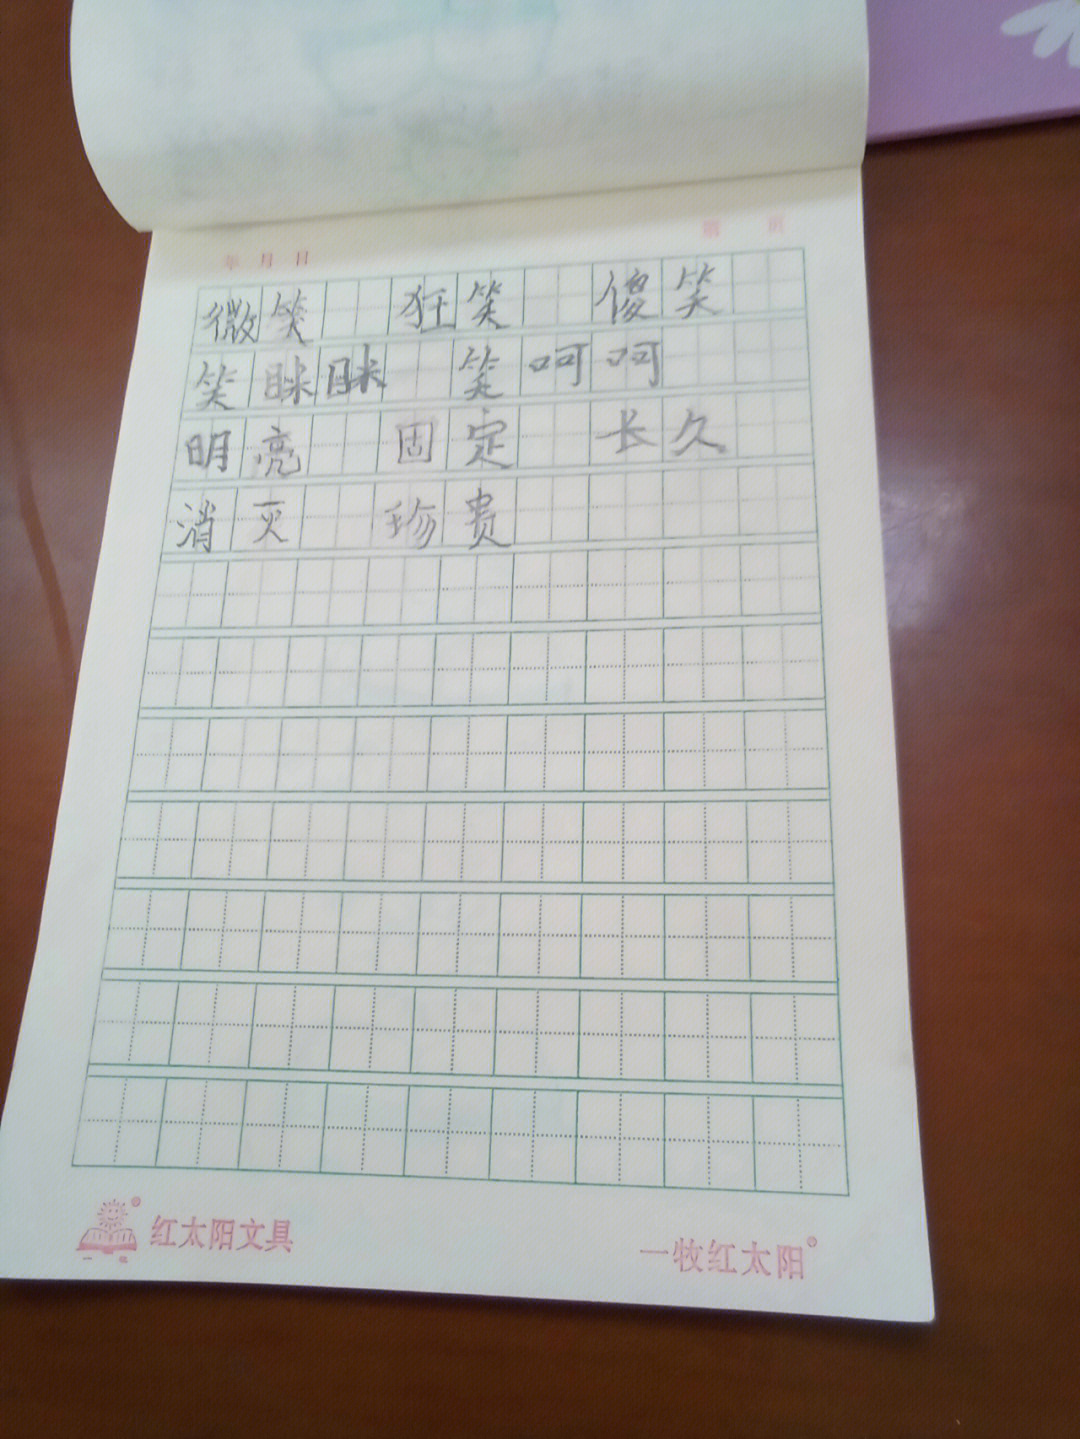 年 月 日 第 页
微笑 狂笑 傻笑
笑眯眯 笑呵呵
明亮 固定 长久
消灭 珍贵
红太阳文具 一牧红太阳